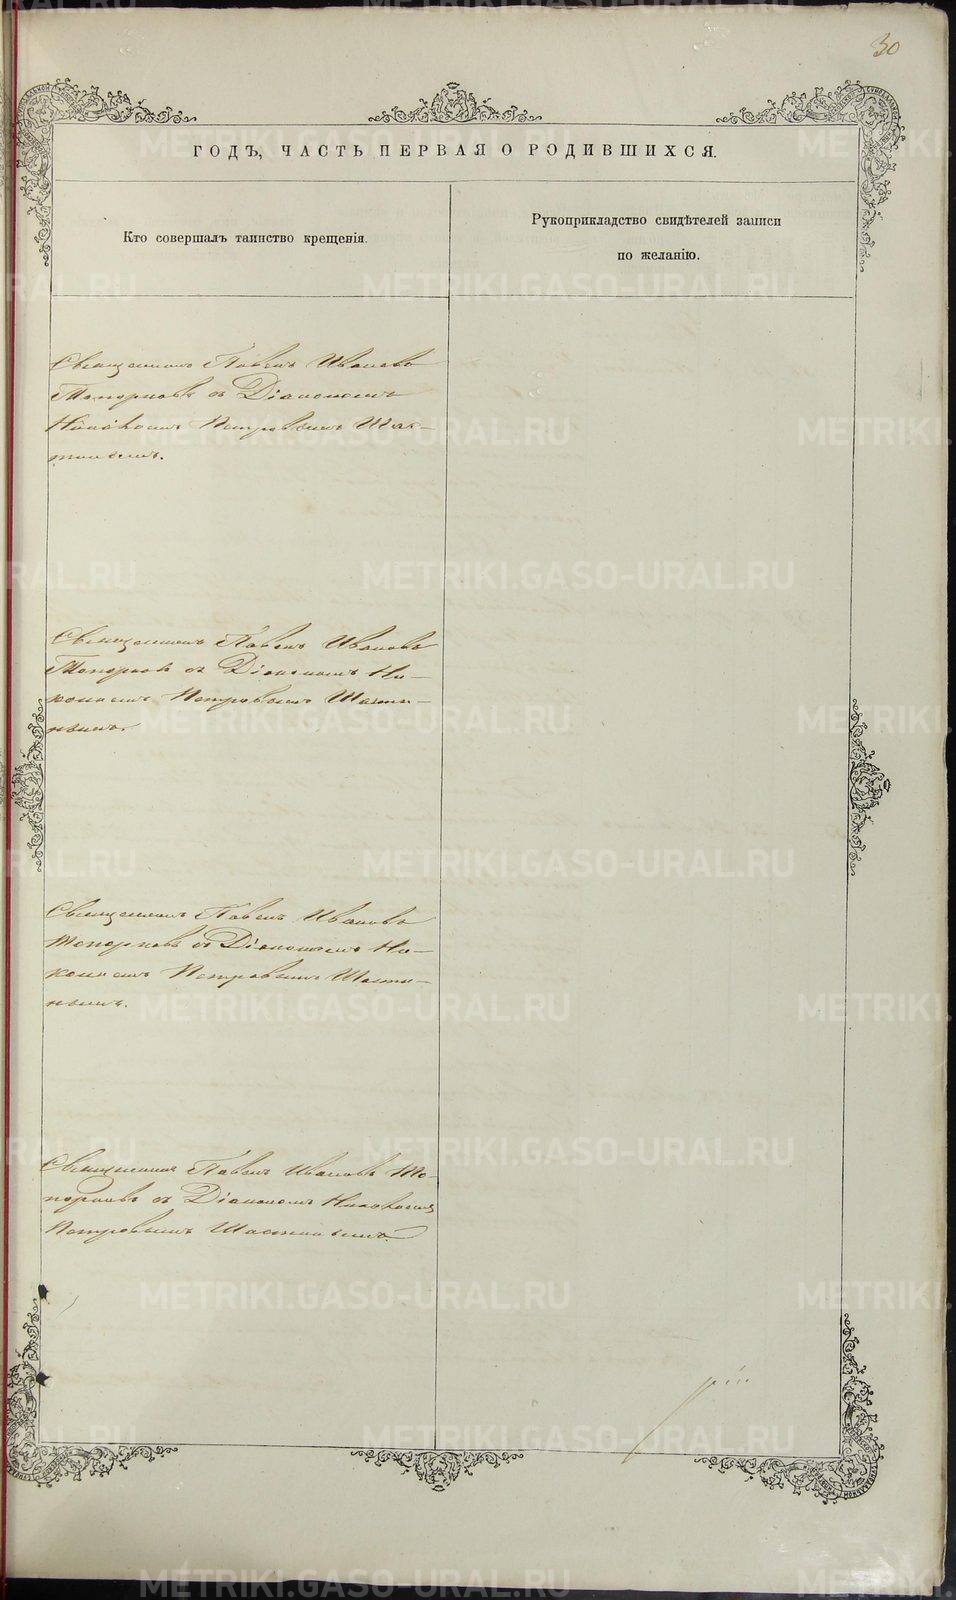 30
ГОДЪ, ЧАСТЬ ПЕРВАЯ О РОДИВШИХСЯ.
Кто совершалъ таинство крещенія.
Рукоприкладство свидѣтелей записи
по желанію.
Священникъ Павелъ Ивановъ
Топорковъ съ Діакономъ
Николаемъ Петровымъ Шас-
тинымъ.
Священникъ Павелъ Ивановъ
Топорковъ съ Діакономъ Ни-
колаемъ Петровымъ Шасти-
нымъ.
Священникъ Павелъ Ивановъ
Топорковъ съ Діакономъ Ни-
колаемъ Петровымъ Шасти-
нымъ.
Священникъ Павелъ Ивановъ То-
порковъ съ Діакономъ Николаемъ
Петровымъ Шастинымъ.
METRIKI.GASO-URAL.RU